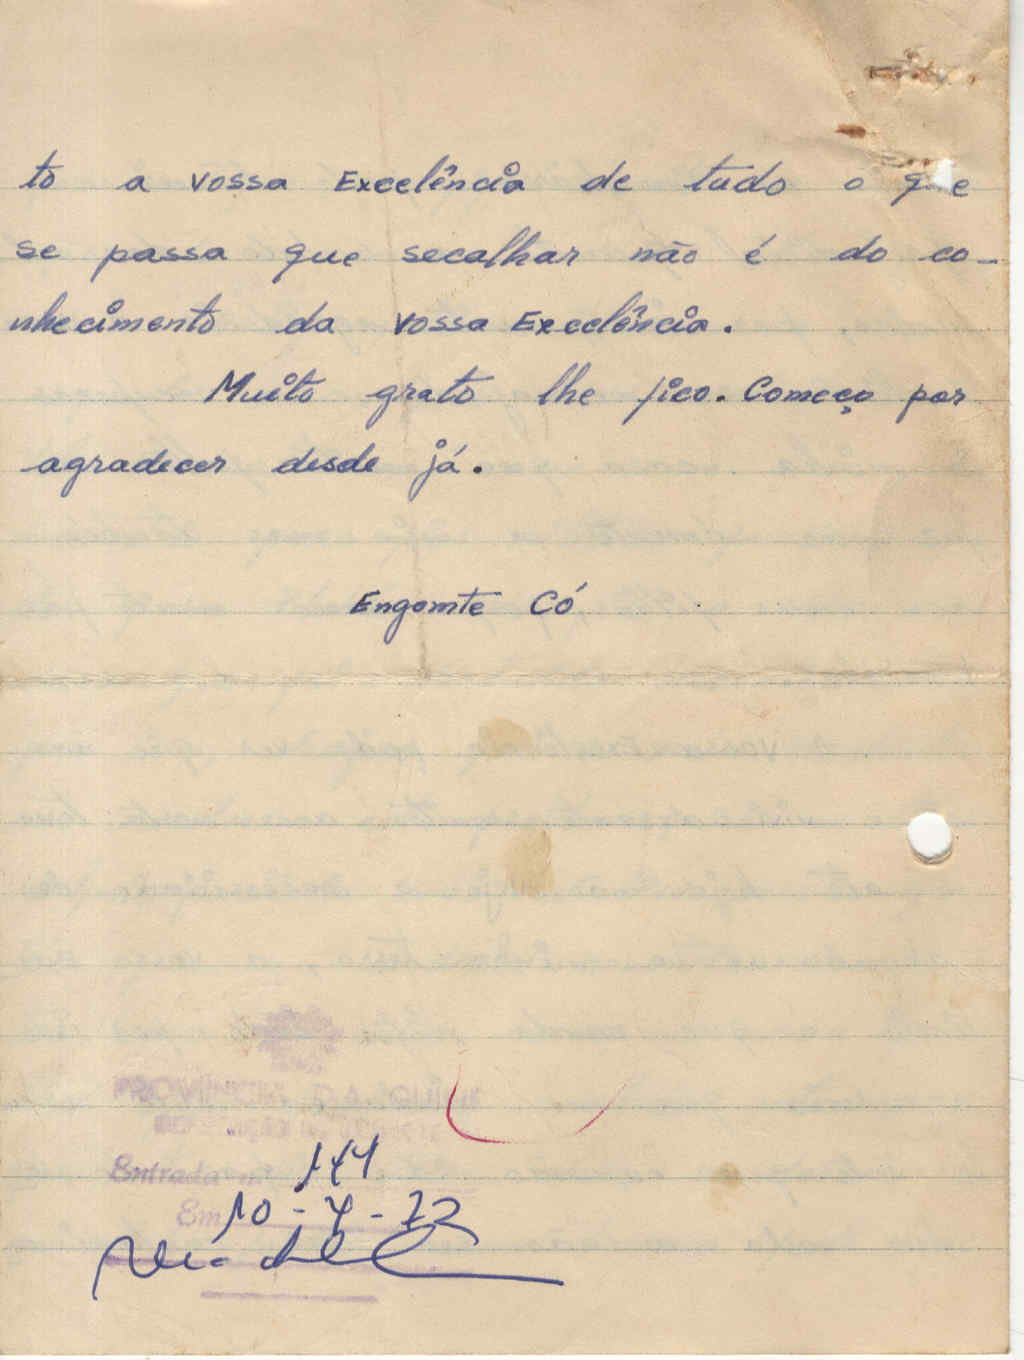 to a vossa Excelência de tudo o que
se passa que secalhar não é do co-
nhecimento da vossa Excelência.
Muito grato lhe fico. Começo por
agradecer desde já.
Engomte Có
PROVÍNCIA DA GUINÉ
Entrada nº
Em 10 - 4 - 72